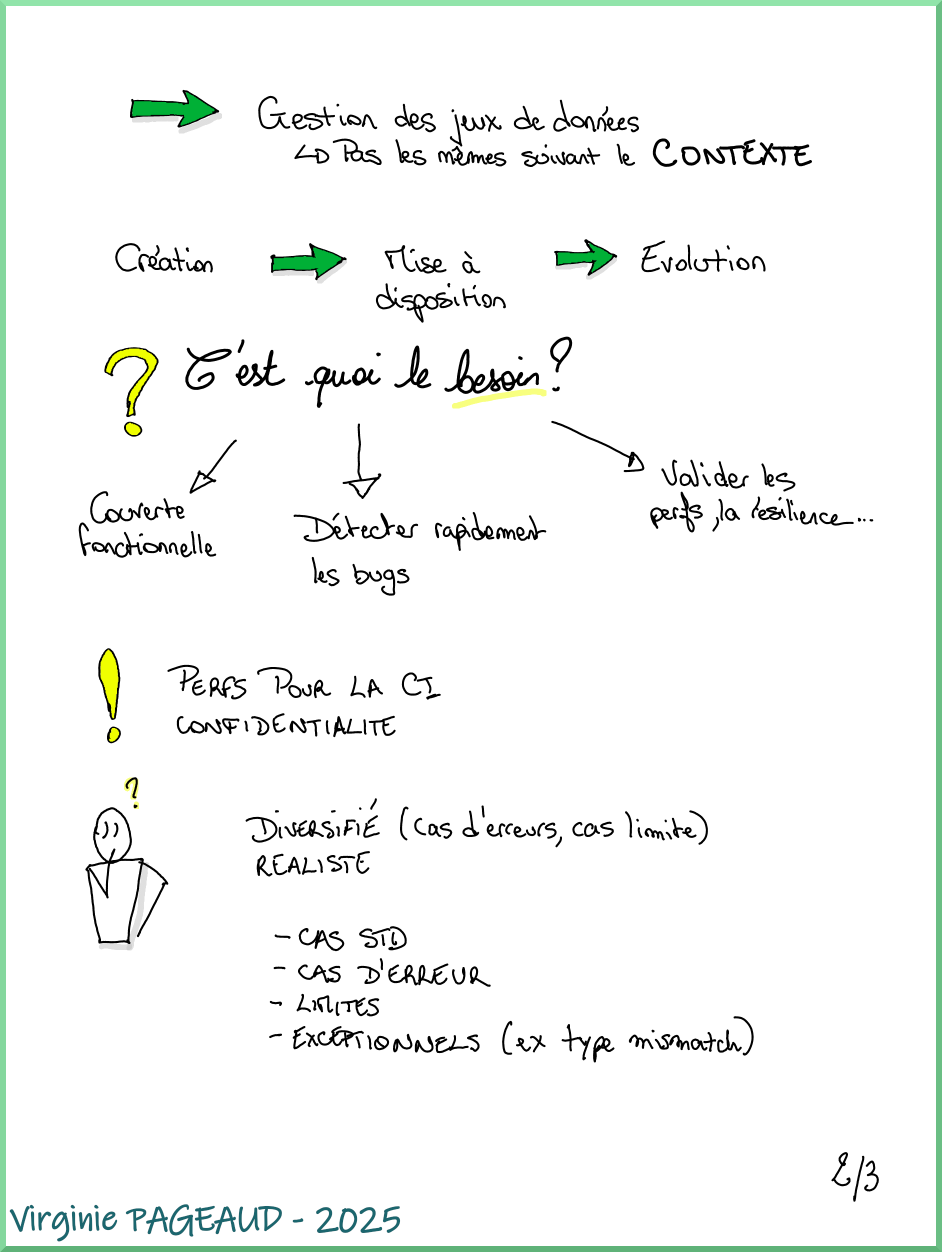 Gestion des jeux de données
↳ Pas les mêmes suivant le CONTEXTE
Création
Mise à
disposition
Evolution
? C'est quoi le besoin ?
Couverte
fonctionnelle
Détecter rapidement
les bugs
Valider les
perfs, la résilience...
!
PERFS POUR LA CI
CONFIDENTIALITE
?
DIVERSIFIÉ (cas d'erreurs, cas limite)
REALISTE
- CAS STD
- CAS D'ERREUR
- LIMITES
- EXCEPTIONNELS (ex type mismatch)
2/3
Virginie PAGEAUD - 2025